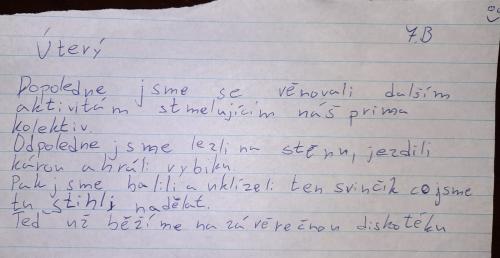 7.B
Úterý
Dopoledne jsme se věnovali dalším
aktivitám stmelujícím náš prima
kolektiv.
Odpoledne jsme lezli na stěnu, jezdili
károu a hráli vybiku.
Pak jsme balili a uklízeli ten svinčík co jsme
tu stihlj nadělat.
Teď už běžíme na závěrečnou diskotéku